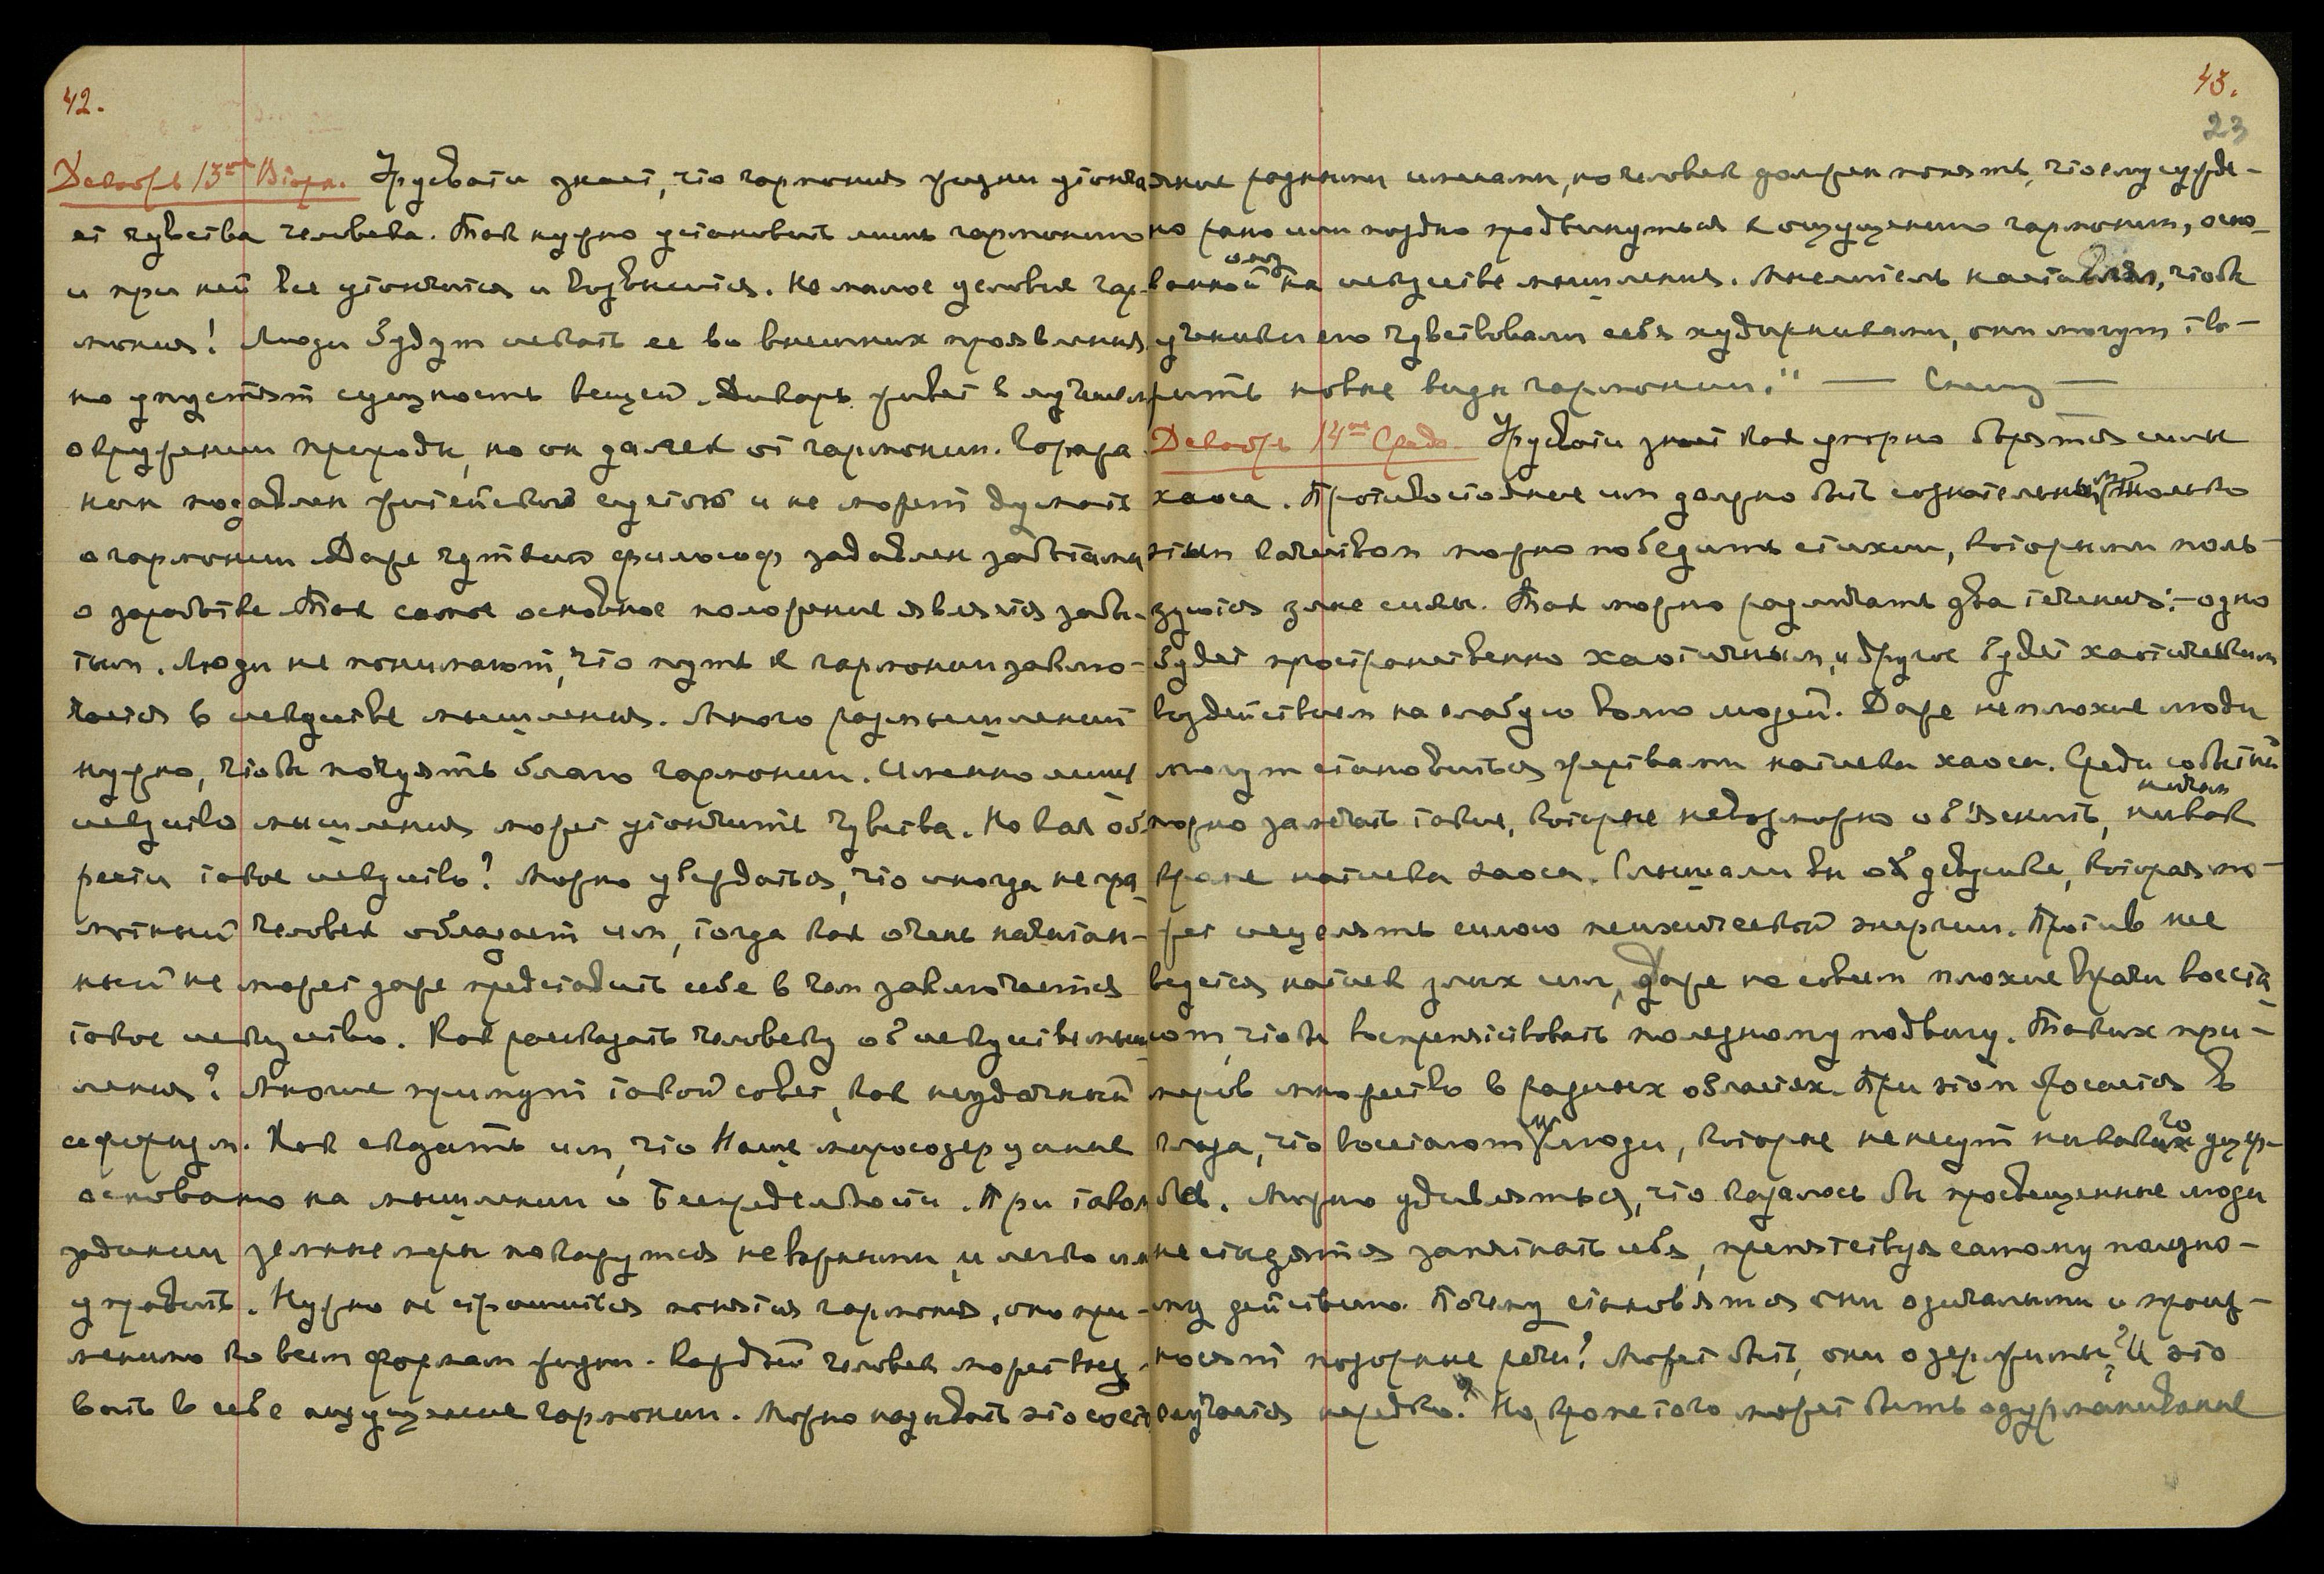 42.
Декабрь 13ое Вторн. Урусвати знает, что гармония жизни утонча-
ет чувства человека. Так нужно установить лишь гармонию
и при ней все утончится и возвысится. Не малое условие гар-
мония! Люди будут искать ее во внешних проявлениях
но упустят сущность вещей. Дикарь живет в лучшем
окружении природы, но он далек от гармонии. Горожа-
нин подавлен житейской суетою и не может думать
о гармонии. Даже чуткий философ задавлен заботами
о заработке. Так самое основное положение является забы-
тым. Люди не понимают, что путь к гармонии заклю-
чается в искусстве мышления. Много размышлений
нужно, чтобы почуять благо гармонии. Именно лишь
искусство мышления может утончить чувства. Но как об-
рести такое искусство? Можно убедиться, что иногда негра-
мотный человек обладает им, тогда как очень начитан-
ный не может даже представить себе в чем заключается
такое искусство. Как рассказать человеку об искусстве мыш-
ления? Многие примут такой совет, как неудачный
афоризм. Как сказать им, что Наше миросозерцание
основано на мышлении о Беспредельности. При таком
задании земные меры покажутся неверными, и легко их
управить. Нужно не страшиться понятия гармония, оно при-
менимо ко всем формам жизни. Каждый человек может вызы-
вать в себе ощущение гармонии. Можно называть это состо-
43.
23
яние разными именами, но человек должен понять, что ему сужде-
но рано или поздно продвинуться к ощущению гармонии, осно-
ванной на искусстве мышления. Мыслитель наставлял, чтобы
ученики его чувствовали себя художниками, они могут тво-
рить новые виды гармонии." — Спешу —
Декабрь 14ое Среда. Урусвати знает как упорно борятся силы
хаоса. Противостояние им должно быть сознательным, только
этим качеством можно победить стихии, которыми поль-
зуются злые силы. Так можно различать два течения: – одно
будет пространственно хаотичным, и другое будет хаотическим
воздействием на слабую волю людей. Даже неплохие люди
могут становиться жертвами натиска хаоса. Среди событий
можно замечать такие, которые невозможно об'яснить, ничем
кроме натиска хаоса. Слышали вы об девушке, которая мо-
жет исцелять силою психической энергии. Против нее
ведется натиск злых сил, даже не совсем плохие врачи восста-
ют, чтобы воспрепятствовать полезному подвигу. Таких при-
меров множество в разных областях. При этом бросается в
глаза, что восстают и люди, которые не несут никакого ущер-
ба. Можно удивляться, что казалось бы просвещенные люди
не стыдятся запятнать себя, препятствуя самому полезно-
му действию. Почему становятся они одичалыми и произ-
носят позорные речи? Может быть, они одержимы? И это
случается нередко. Но, кроме того может быть одурманивание